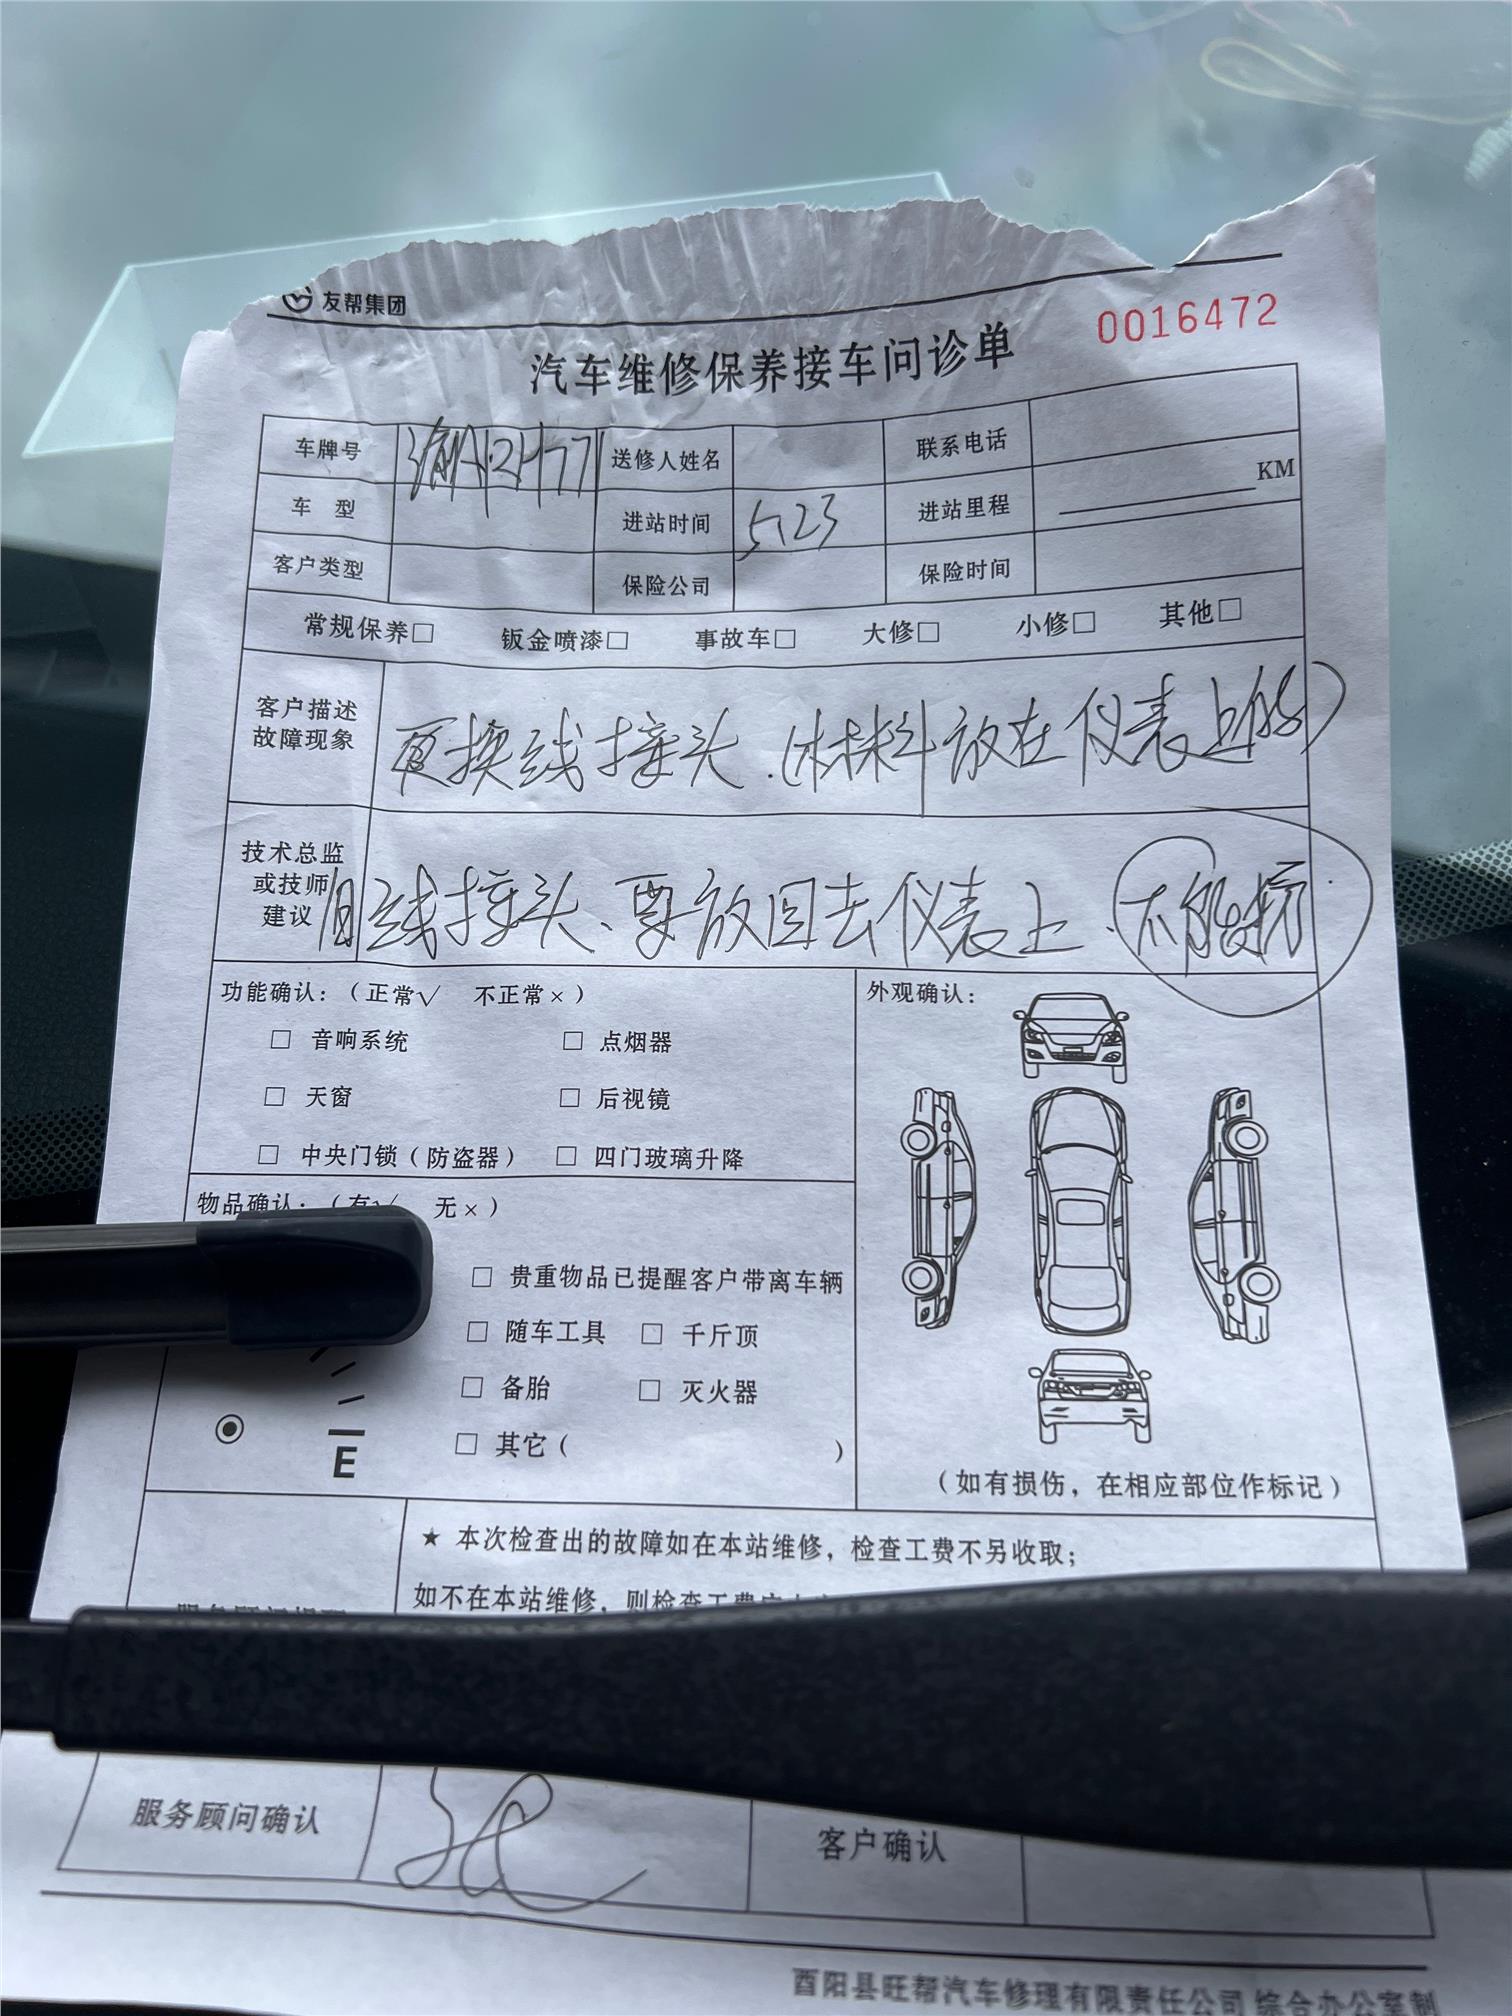 友帮集团
0016472
汽车维修保养接车问诊单
车牌号 送修人姓名 联系电话
车 型 进站时间 5.23 进站里程 KM
客户类型 保险公司 保险时间
常规保养□ 钣金喷漆□ 事故车□ 大修□ 小修□ 其他□
客户描述
故障现象
更换线接头.(材料放在仪表上的)
技术总监
或技师
建议
旧线接头、要放回去仪表上.不能损
功能确认:(正常√ 不正常×)
□ 音响系统 □ 点烟器
□ 天窗 □ 后视镜
□ 中央门锁(防盗器) □ 四门玻璃升降
外观确认:
(如有损伤,在相应部位作标记)
物品确认:(有√ 无×)
□ 贵重物品已提醒客户带离车辆
□ 随车工具 □ 千斤顶
□ 备胎 □ 灭火器
□ 其它( )
E
★ 本次检查出的故障如在本站维修,检查工费不另收取;
如不在本站维修,则检查工费
服务顾问确认 客户确认
酉阳县旺帮汽车修理有限责任公司 综合办公室制